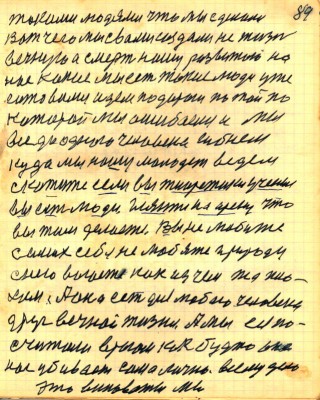 89
такими людями что мы сделали
вот чего мы свами создали не жизнь
вечную а смерть нашу развитою на
нас какие мы есть такие люди уже
с вами идем по дороги по той по
которой мы ошибались и мы
все до одного человека гибнем
куда мы нашу молодеж ведем
скажите если вы теоретики ученые
вы есть люди на арену что
вы там делаете. Вы не любите
самих себя не любите природу
его как из чем то
Она есть для любого человека
друг вечной жизни. А мы ее по-
считали врагом как будто она
нас убивает сама лично. всему делу
это виноваты мы